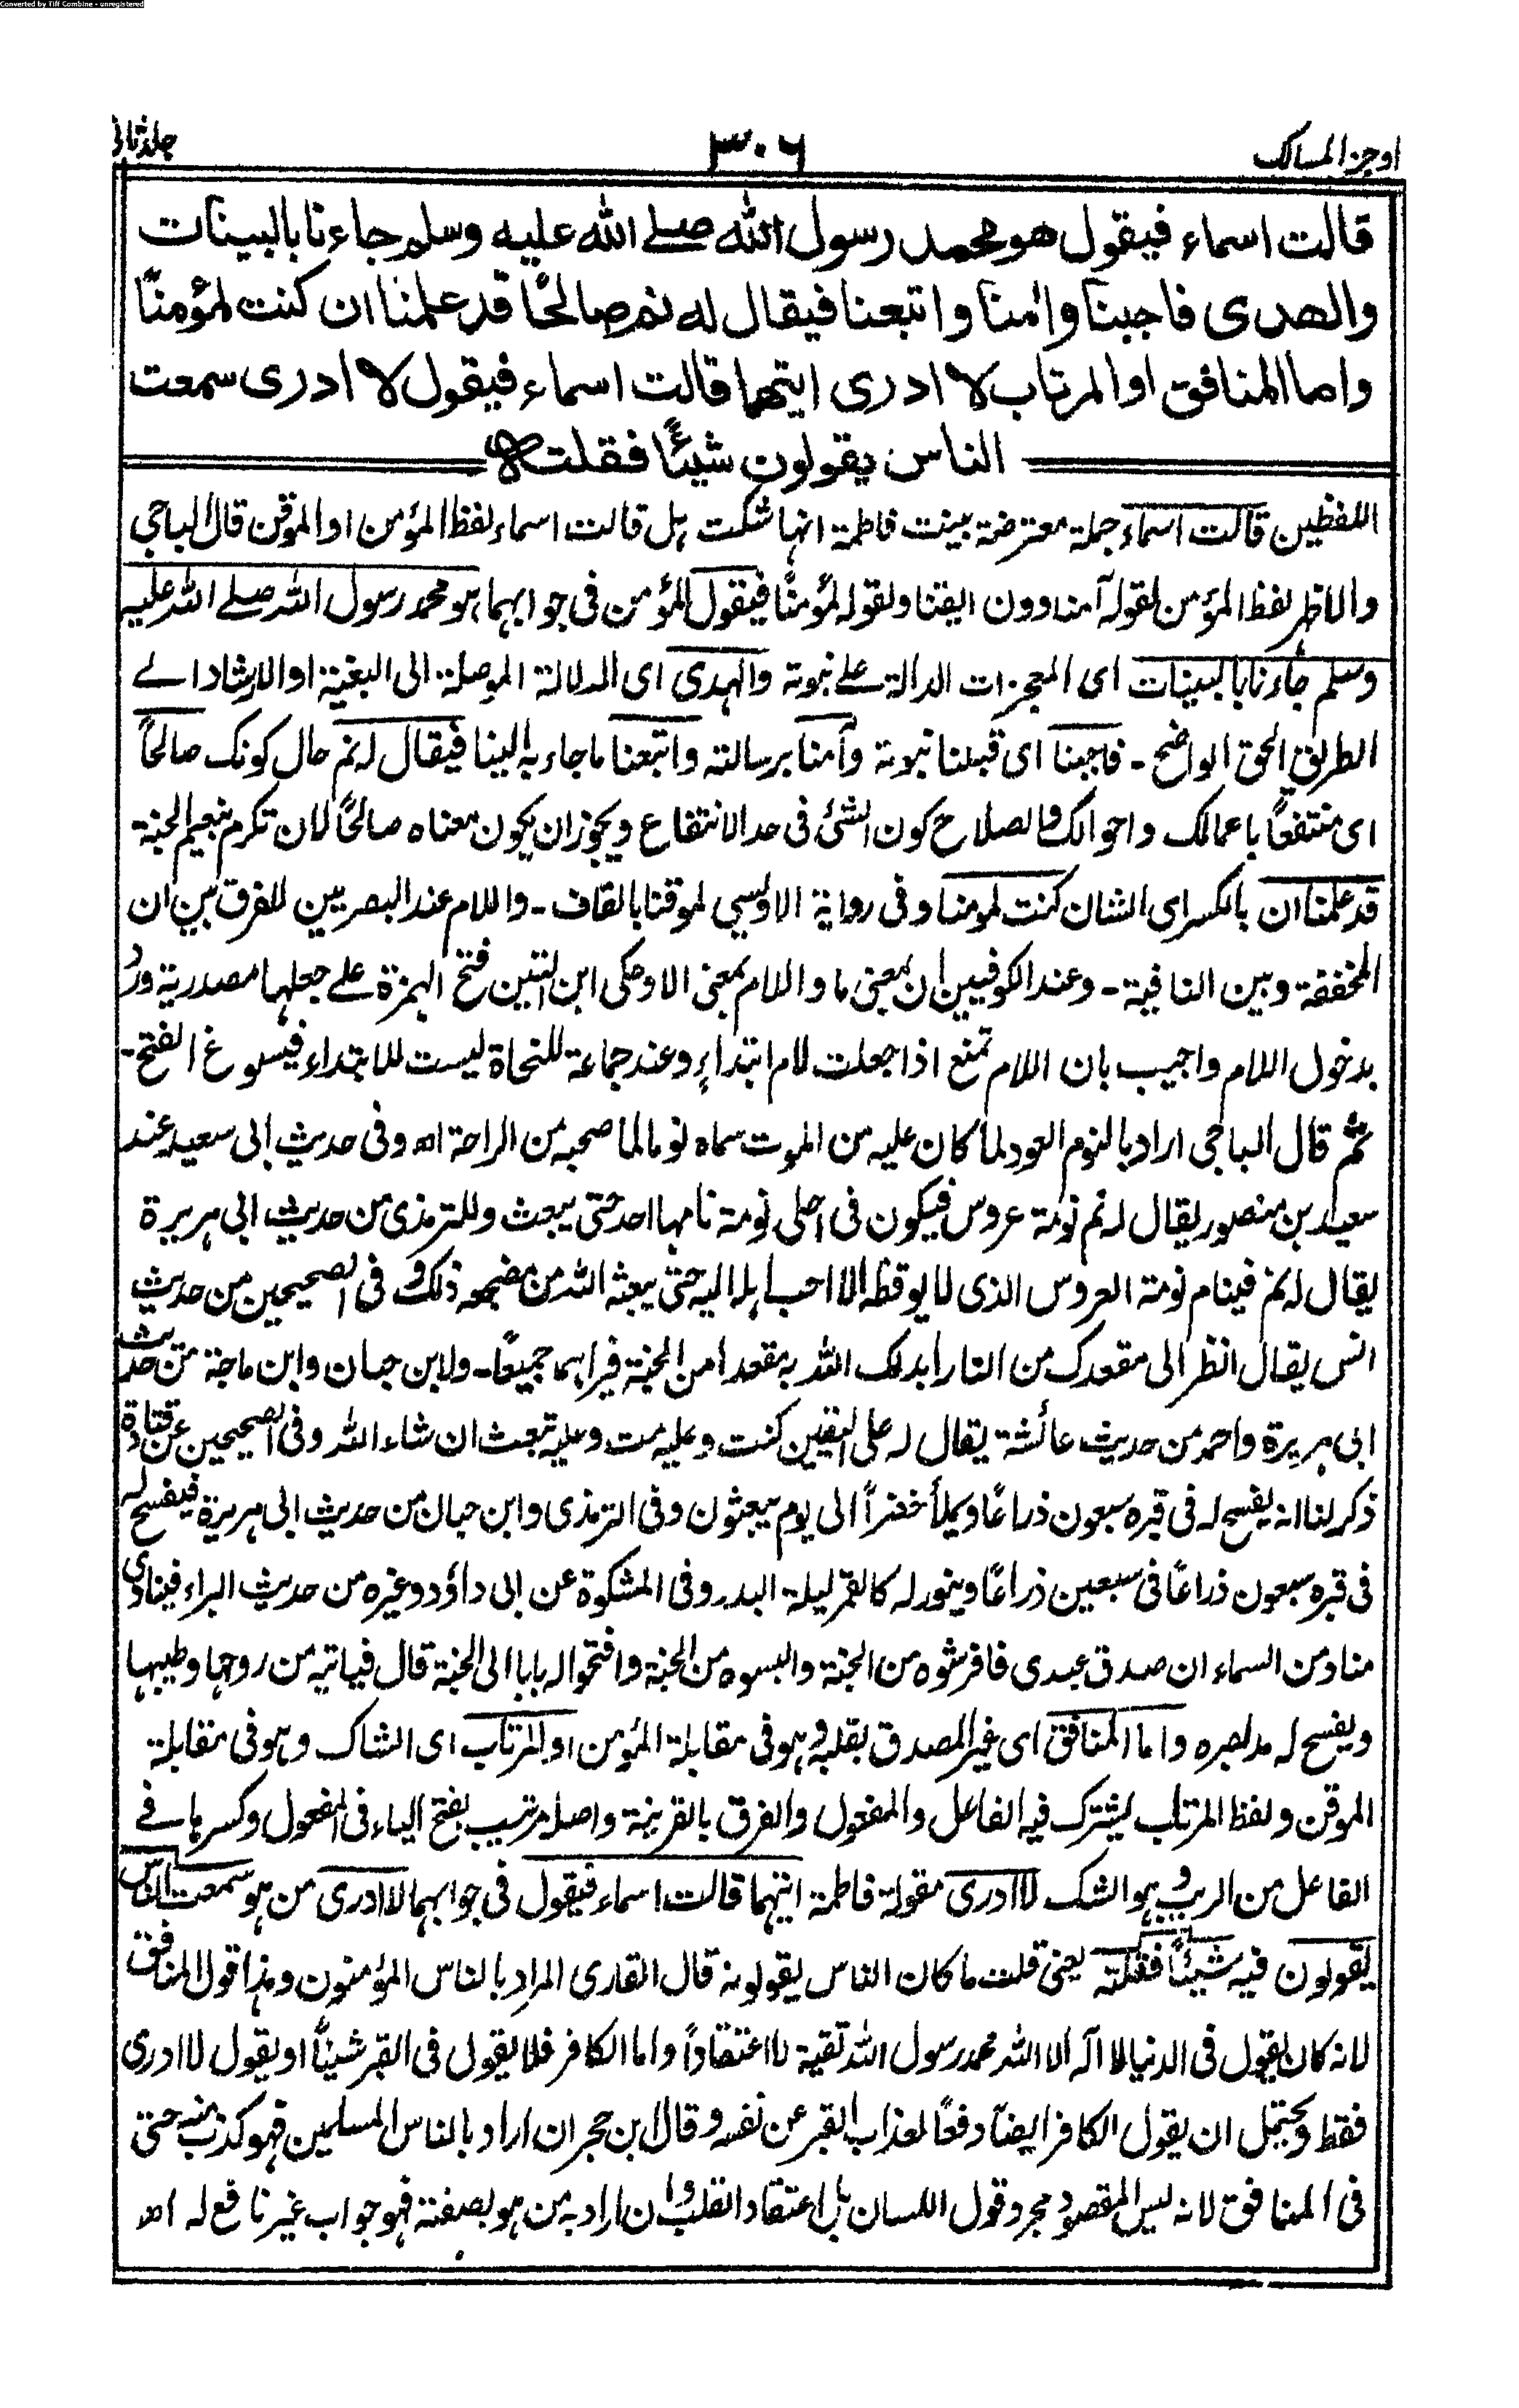 Converted by Tiff Combine - unregistered
اوجز المسالك
٣٠٦
جلد ثانی
قالت اسماء فيقول هو محمد رسول الله صلے الله عليه وسلم جاءنا بالبينات
والهدى فاجبنا واٰمنا واتبعنا فيقال له نم صالحًا قد علمنا ان كنت لمؤمنًا
واما المنافق او المرتاب لا ادرى ايتهما قالت اسماء فيقول لا ادرى سمعت
الناس يقولون شيئًا فقلته
اللفظين قالت اسماء جملة معترضة بينت فاطمة انها شكت هل قالت اسماء لفظ المؤمن او الموقن قال الباجي
والاظهر لفظ المؤمن لقوله آمنا دون ايقنا ولقوله لمؤمنًا فيقول المؤمن فى جوابهما هو محمد رسول الله صلے الله عليه
وسلم جاءنا بالبينات اى المعجزات الدالة علے نبوته والهدى اى الدلالة الموصلة الى البغية او الارشاد الے
الطريق الحق الواضح - فاجبنا اى قبلنا نبوته وآمنا برسالته واتبعنا ما جاء به الينا فيقال له نم حال كونك صالحاً
اى منتفعاً باعمالك واحوالك والصلاح كون الشئ فى حد الانتفاع ويجوز ان يكون معناه صالحًا لان تكرم بنعيم الجنة
قد علمنا ان بالكسر اى الشان كنت لمومنا وفى رواية الاويسي لموقنا بالقاف - واللام عند البصريين للفرق بين ان
المخففة وبين النافية - وعند الكوفيين ان بمعنى ما واللام بمعنى الا وحكى ابن التين فتح الهمزة علے جعلها مصدرية ورد
بدخول اللام واجيب بان اللام تمنع اذا جعلت لام ابتداءٍ وعند جماعة للنحاة ليست للابتداء فيسوغ الفتح -
ثم قال الباجى اراد بالنوم العود لما كان عليه من الموت سماه نوما لما صحبه من الراحة اه وفى حديث ابى سعيد عند
سعيد بن منصور يقال له نم نومة عروس فيكون فى احلى نومة نامها احد حتى يبعث وللترمذى من حديث ابى هريرة
يقال له نم فينام نومة العروس الذى لا يوقظه الا احب اهله اليه حتى يبعثه الله من مضجعه ذلك وفى الصحيحين من حديث
انس يقال انظر الى مقعدك من النار ابدلك الله به مقعدا من الجنة فيراهما جميعًا - ولابن حبان وابن ماجة من حديث
ابى هريرة واحمد من حديث عائشة يقال له على اليقين كنت وعليه مت وعليه تبعث ان شاء الله وفى الصحيحين عن قتادة
ذكر لنا انه يفسح له فى قبره سبعون ذراعًا ويملأ خضراً الى يوم يبعثون وفى الترمذى وابن حبان من حديث ابى هريرة فيفسح له
فى قبره سبعون ذراعًا فى سبعين ذراعًا وينور له كالقمر ليلة البدر وفى المشكوة عن ابى داؤد وغيره من حديث البراء فينادى
مناد من السماء ان صدق عبدى فافرشوه من الجنة والبسوه من الجنة وافتحوا له بابا الى الجنة قال فياتيه من روحها وطيبها
ويفسح له مد بصره واما المنافق اى غير المصدق بقلبه وهو فى مقابلة المؤمن او المرتاب اى الشاك وهو فى مقابلة
الموقن ولفظ المرتاب يشترك فيه الفاعل والمفعول والفرق بالقرينة واصله مرتيب بفتح الياء فى المفعول وكسرها فے
الفاعل من الريب وهو الشك لا ادرى مقولة فاطمة ايتهما قالت اسماء فيقول فى جوابهما لا ادرى من هو سمعت الناس
يقولون فيه شيئًا فقلته يعنى قلت ما كان الناس يقولونه قال القارى المراد بالناس المؤمنون وهذا قول المنافق
لانه كان يقول فى الدنيا لا اله الا الله محمد رسول الله تقية لا اعتقاداً واما الكافر فلا يقول فى القبر شيئًا او يقول لا ادرى
فقط ويحتمل ان يقول الكافر ايضا دفعًا لعذاب القبر عن نفسه وقال ابن حجر ان اراد بالناس المسلمين فهو كذب منه حتى
فى المنافق لانه ليس المقصود مجرد قول اللسان بل اعتقاد القلب وان اراد به من هو بصفته فهو جواب غير نافع له اه